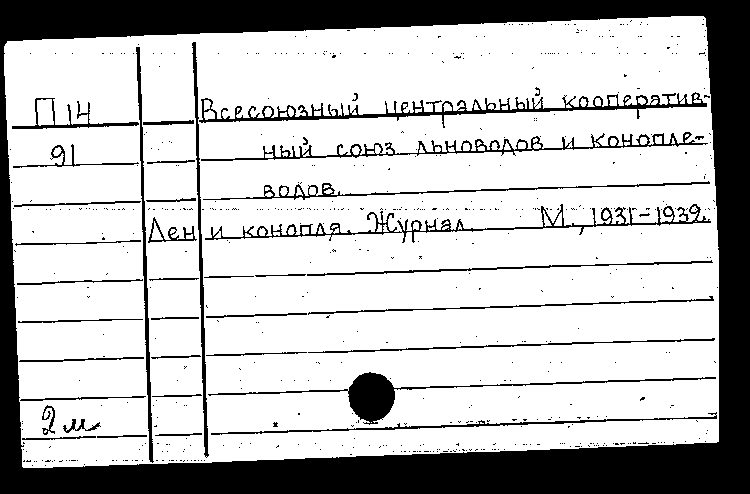 П 14 Всесоюзный центральный кооператив-
91 ный союз льноводов и конопле-
водов.
Лен и конопля. Журнал. М., 1931-1939.
2 м